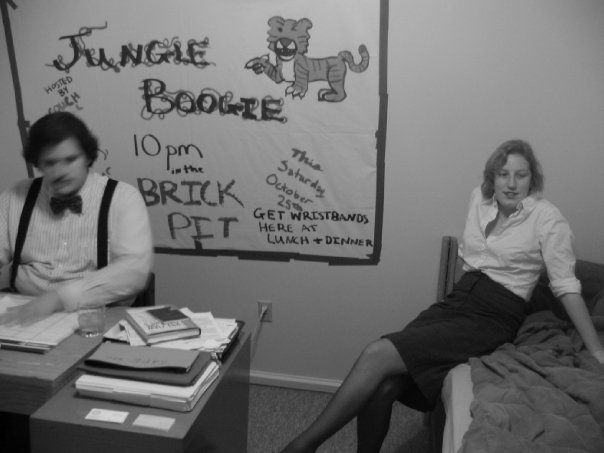 JUNGLE
BOOGIE
HOSTED
BY
10pm
in the
BRICK
PIT
This
Saturday
October
25th
GET WRISTBANDS
HERE AT
LUNCH + DINNER